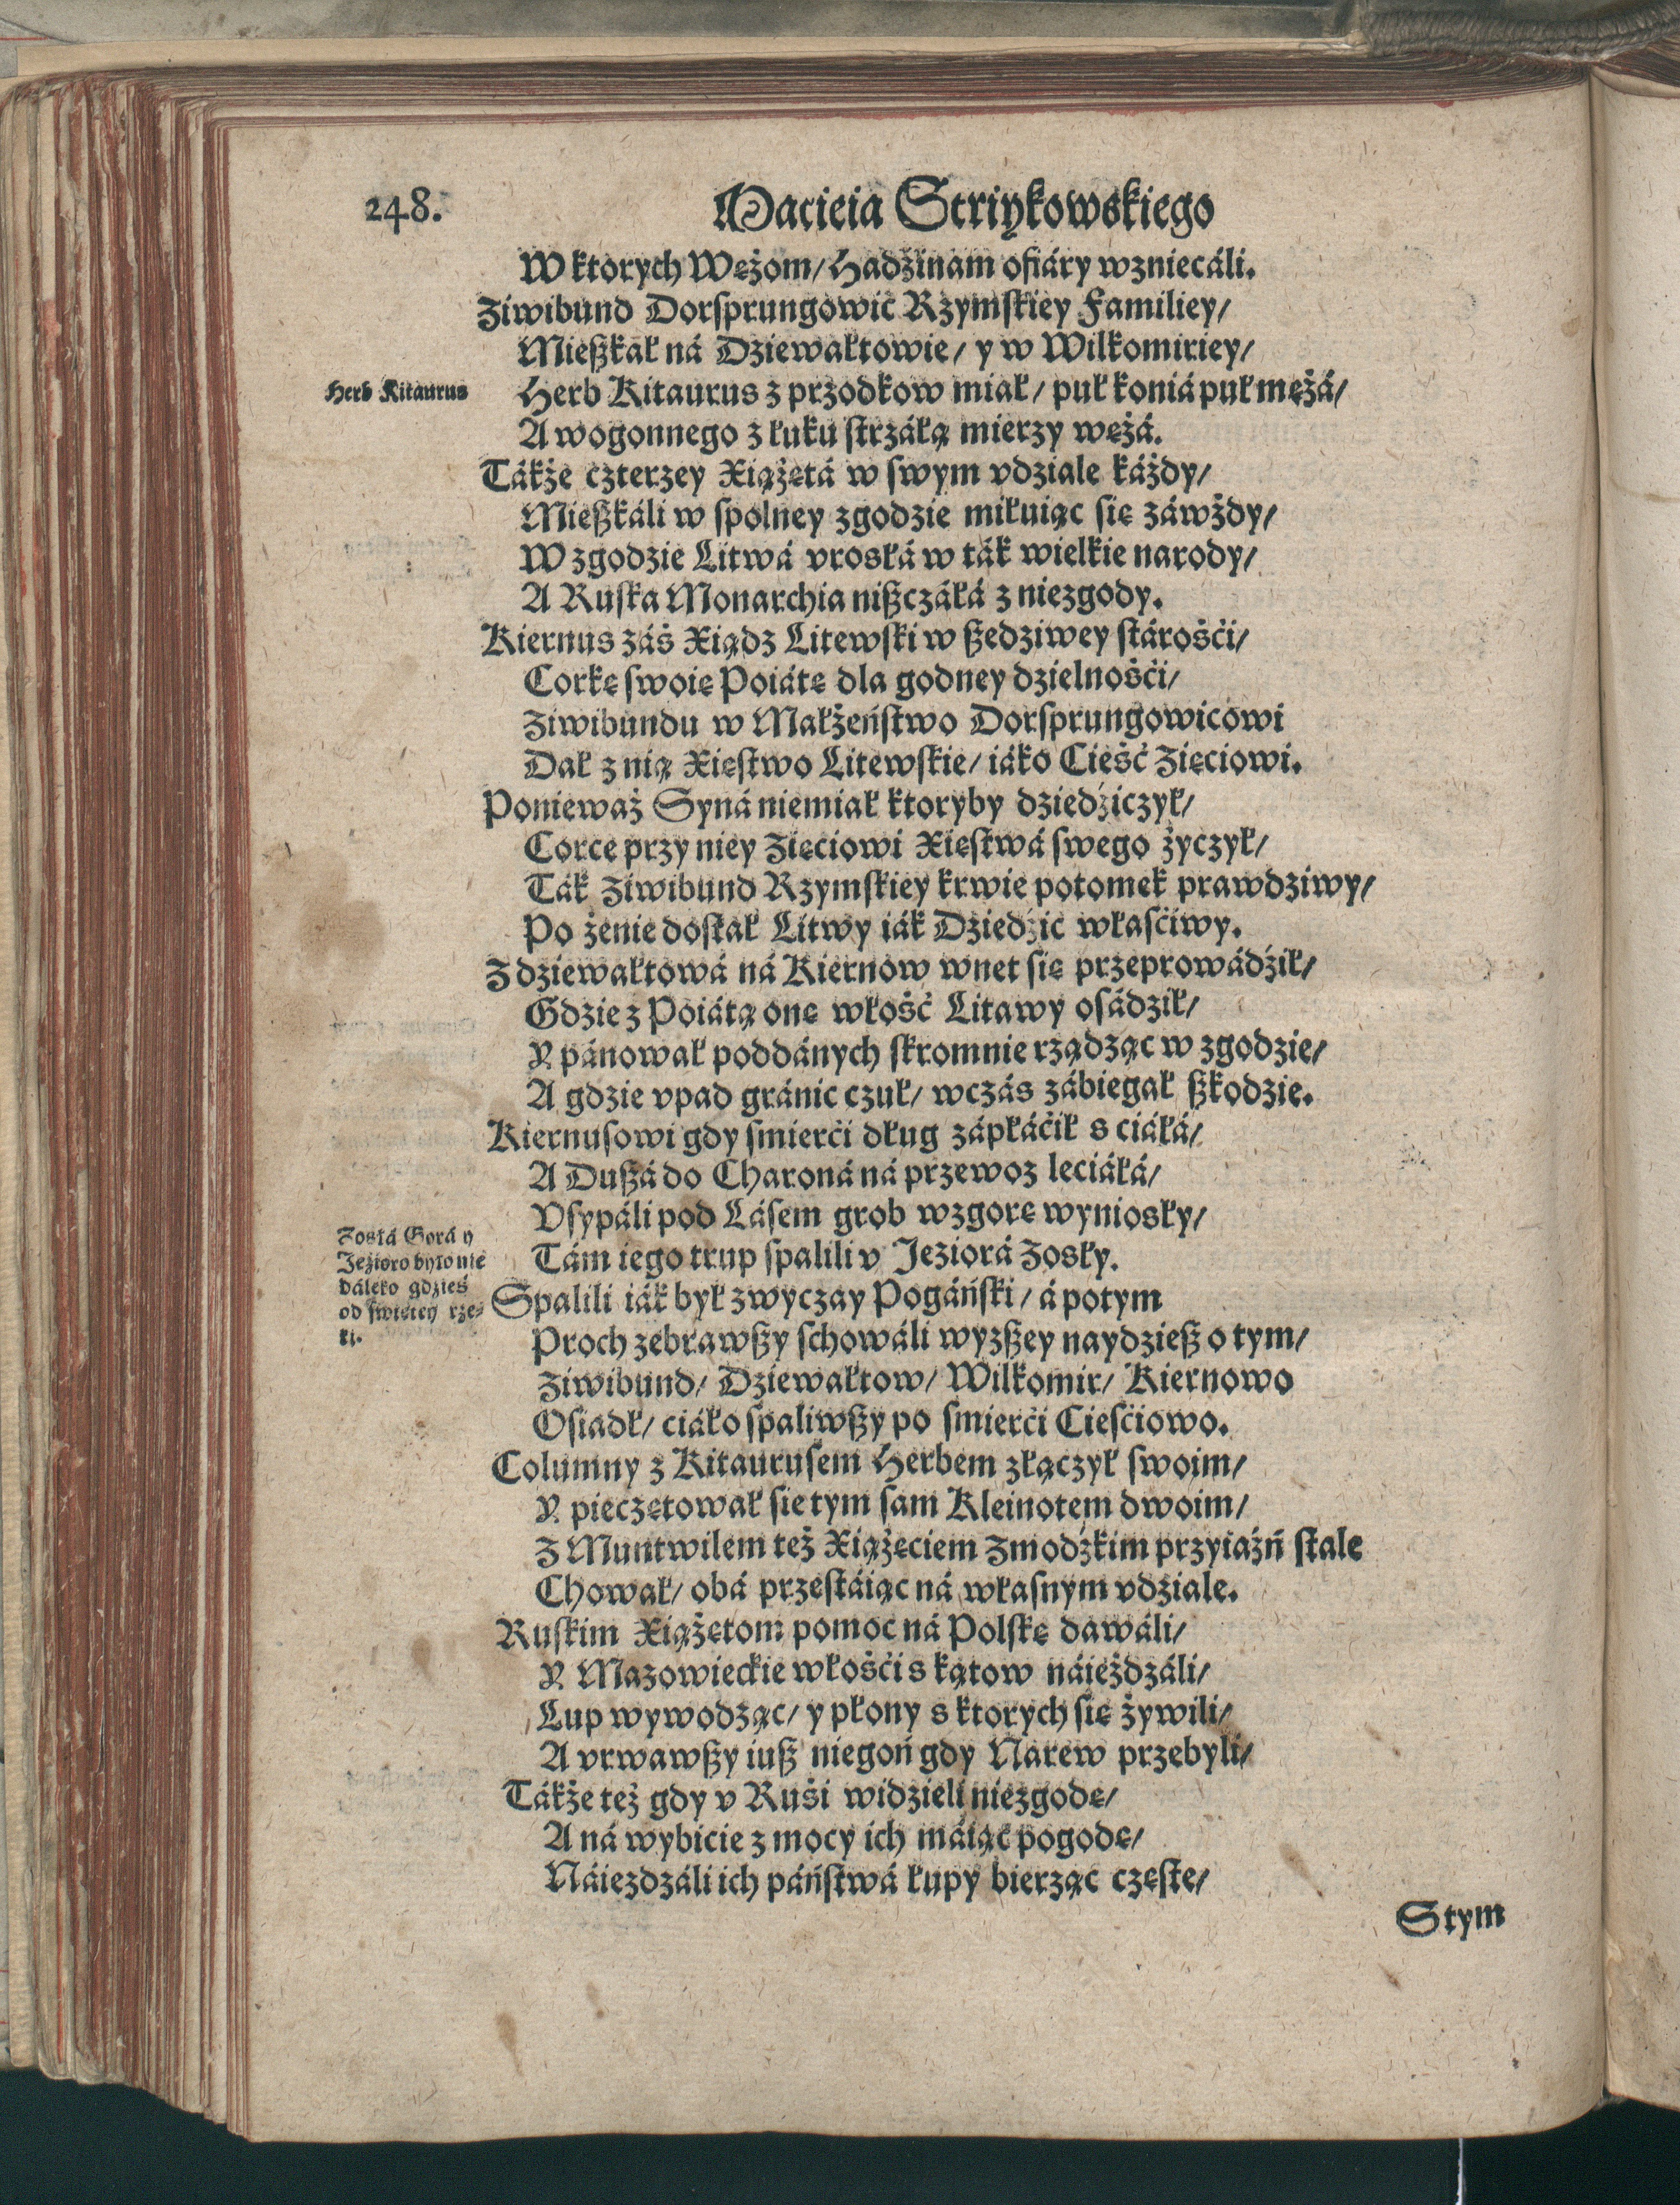 248.
Macieia Striykowskiego
W ktorych Wężom/ Hadżinam ofiáry wzniecáli.
Ziwibund Dorsprungowic Rzymskiey Familiey/
Mießkał ná Dziewałtowie/ y w Wilkomiriey/
Herb Kitaurus
Herb Kitaurus z przodkow miał/ puł koniá puł mężá/
A wogonnego z łuku strzáłą mierzy wężá.
Tákże czterzey Xiążętá w swym vdziale káżdy/
Mießkáli w spolney zgodzie miłuiąc się záwżdy/
W zgodzie Litwá vrosłá w ták wielkie narody/
A Ruska Monarchia nißczáłá z niezgody.
Kiernus záś Xiądz Litewski w ßedziwey stárośći/
Corkę swoię Poiátę dla godney dzielnośći/
Ziwibundu w Małżeństwo Dorsprungowicowi
Dał z nią Xięstwo Litewskie/ iáko Cieść Zięciowi.
Ponieważ Syná niemiał ktoryby dziedźiczył/
Corce przy niey Zięciowi Xięstwá swego życzył/
Ták Ziwibund Rzymskiey krwie potomek prawdziwy/
Po żenie dostał Litwy iák Dziedźic własćiwy.
Z dziewałtowá ná Kiernow wnet się przeprowádźił/
Gdzie z Poiátą onę włość Litawy osádził/
Y pánował poddánych skromnie rządząc w zgodzie/
A gdzie vpad gránic czuł/ wczás zábiegał ßkodzie.
Kiernusowi gdy smierći dług zápłáćił s ciáłá/
A Dußá do Charoná ná przewoz leciáłá/
Vsypáli pod Lásem grob wzgorę wyniosły/
Zosłá Gorá y
Jezioro było nie
dáleko gdzieś
od świętey rze-
ki.
Tám iego trup spalili v Jeziorá Zosły.
Spalili iák był zwyczay Pogáński/ á potym
Proch zebrawßy schowáli wyzßey naydzieß o tym/
Ziwibund/ Dziewałtow/ Wilkomir/ Kiernowo
Osiadł/ ciáło spaliwßy po smierći Ciesćiowo.
Columny z Kitaurusem Herbem złączył swoim/
Y pieczętował sie tym sam Kleinotem dwoim/
Z Muntwilem też Xiążęciem Zmodźkim przyiáźń stale
Chował/ obá przestáiąc ná własnym vdziale.
Ruskim Xiążętom pomoc ná Polskę dawáli/
Y Mazowieckie włośći s kątow náieżdzáli/
Lup wywodząc/ y płony s ktorych się żywili/
A vrwawßy iuß niegoń gdy Narew przebyli/
Tákże też gdy v Ruśi widzieli niezgodę/
A ná wybicie z mocy ich máiąc pogodę/
Náiezdzáli ich páństwá łupy bierząc częste/
Stym